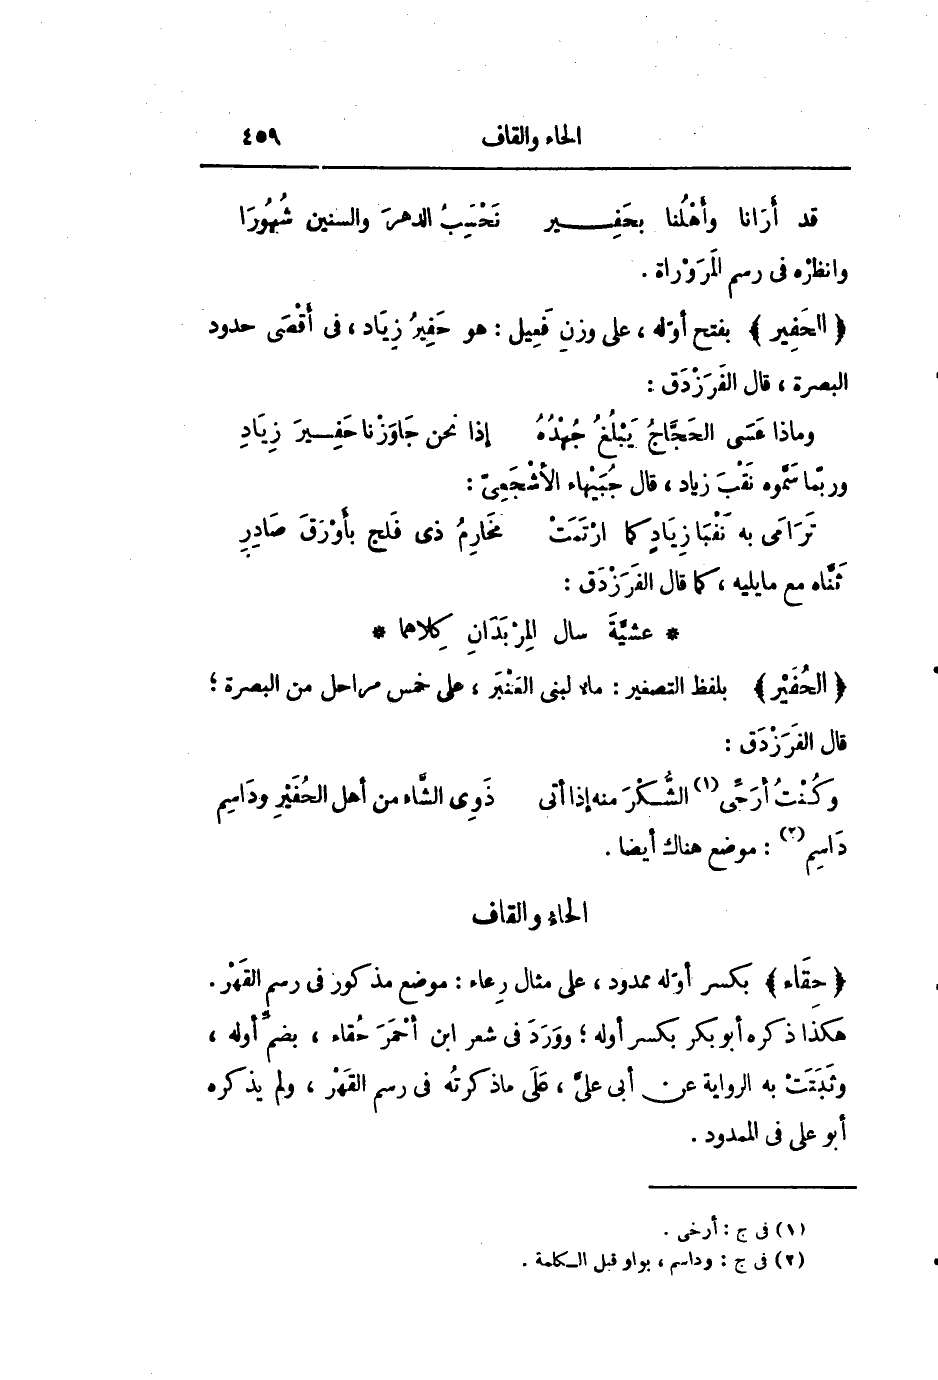 الحاء والقاف ٤٥٩
قد أَرَانا وأَهْلُنا بحَفِـــير نَحْسِبُ الدهرَ والسنين شُهُورَا
وانظرْه فى رسم المَرَوْراة .
﴿ الحَفِير ﴾ بفتح أوّله ، على وزن فَعِيل : هو حَفِيرُ زِيَاد ، فى أَقْصَى حدود
البصرة ، قال الفَرَزْدَق :
وماذا عَسَى الحَجَّاجُ يَبْلُغُ جُهْدُهُ إذا نحن جَاوَزْنا حَفِـيرَ زِيَادِ
وربّما سَمَّوه نَقْبَ زياد ، قال جُبَيْهاء الأَشْجَعِىّ :
تَرَامَى به نَقْبَا زِيَادٍ كما ارْتَمَتْ مَخَارِمُ ذى فَلج بأَوْرَقَ صَادِرِ
ثَنَّاه مع مايليه ، كما قال الفَرَزْدَق :
* عشيَّةَ سال المِرْبَدَانِ كِلاهما *
﴿ الحُفَيْر ﴾ بلفظ التصغير : ماء لبنى العَنْبَر ، على خمس مراحل من البصرة ؛
قال الفَرَزْدَق :
وكُنْتُ أَرَجِّى(١) الشُّكْرَ منه إذا أتى ذَوِى الشَّاء من أهل الحُفَيْرِ ودَاسِمِ
دَاسِم(٢) : موضع هناك أيضا .
الحاء والقاف
﴿ حِقَاء ﴾ بكسر أوّله ممدود ، على مثال رِعاء : موضع مذكور فى رسم القَهْر .
هكذا ذكره أبو بكر بكسر أوله ؛ ووَرَدَ فى شعر ابن أحْمَرَ حُقاء ، بضمِّ أوله ،
وثَبَتَتْ به الرواية عن أبى علىّ ، عَلَى ماذكرتُه فى رسم القَهْر ، ولم يذكره
أبو على فى الممدود .
(١) فى ج : أرخى .
(٢) فى ج : وداسم ، بواو قبل الـكلمة .